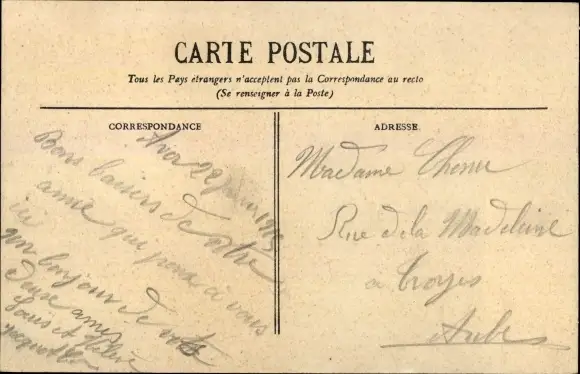 CARTE POSTALE
Tous les Pays étrangers n'acceptent pas la Correspondance au recto
(Se renseigner à la Poste)
CORRESPONDANCE
ADRESSE
22 juin 1913
Bons baisers de votre
amie qui pense à vous
ici
un bonjour de vos
deux amis
Louis et
Madame
Rue de la Madeleine
a Troyes
Aube